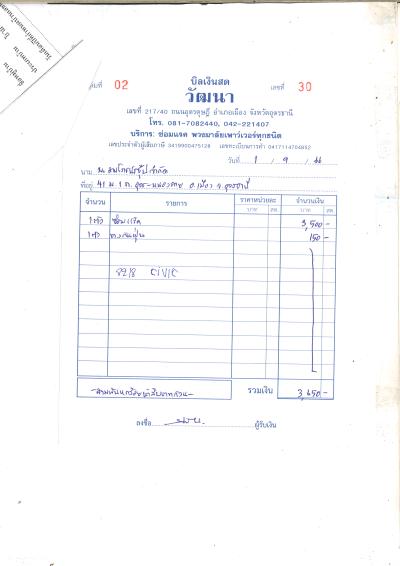 เล่มที่ 02 บิลเงินสด เลขที่ 30
วัฒนา
เลขที่ 217/40 ถนนอุดรดุษฎี อำเภอเมือง จังหวัดอุดรธานี
โทร. 081-7082440, 042-221407
บริการ: ซ่อมแรค พวงมาลัยเพาเวอร์ทุกชนิด
เลขประจำตัวผู้เสียภาษี 3419900475128 เลขทะเบียนการค้า 0417114704852
วันที่ 1 / 9 / 44
นาม
ที่อยู่ อ.เมือง จ.อุดรธานี
จำนวน รายการ ราคาหน่วยละ จำนวนเงิน
บาท สต. บาท สต.
1 ตัว ซ่อมแร็ค 3,500 -
1 ตัว ยางกันฝุ่น 150 -
8218 CIVIC
-สามพันหกร้อยห้าสิบบาทถ้วน- รวมเงิน 3,650 -
ลงชื่อ ผู้รับเงิน